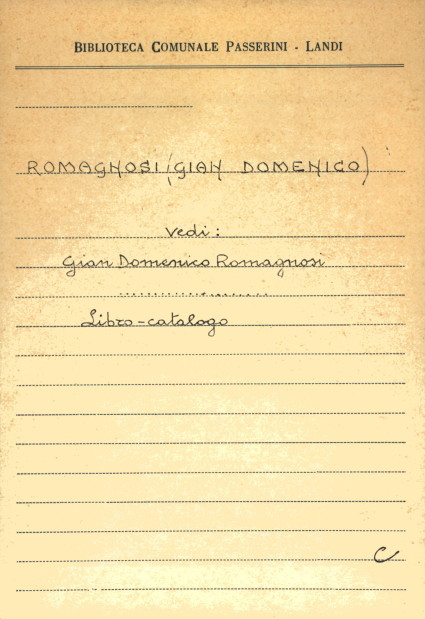 BIBLIOTECA COMUNALE PASSERINI - LANDI
ROMAGNOSI (GIAN DOMENICO)
Vedi:
Gian Domenico Romagnosi
....................
Libro-catalogo
C